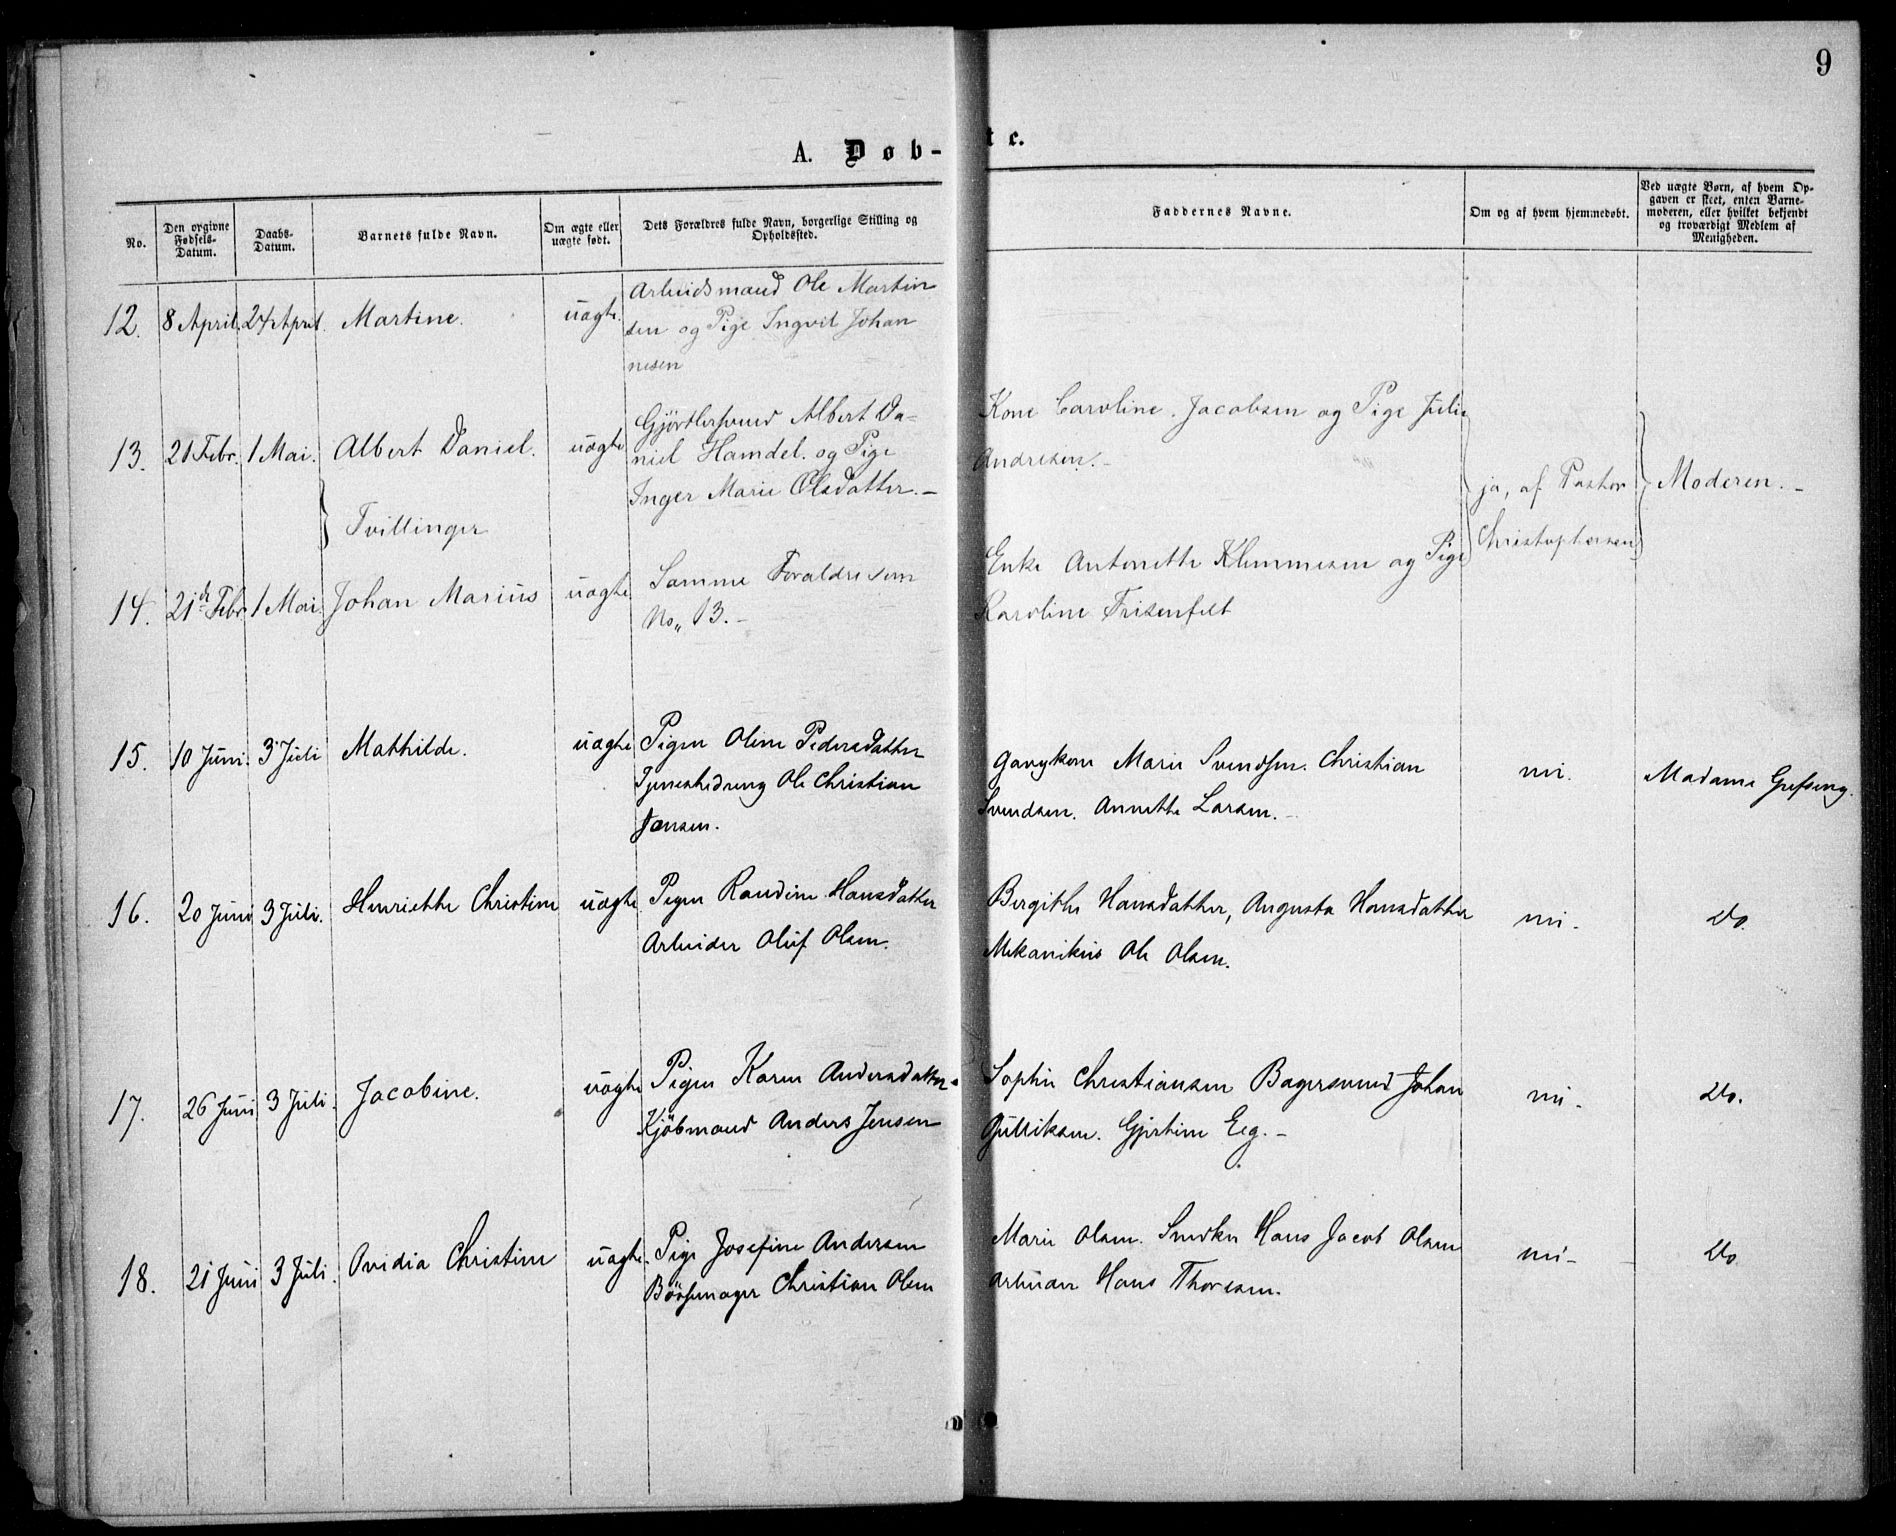 9
A. Døb-
te.
No.
Den opgivne Fødsels-Datum.
Daabs-Datum.
Barnets fulde Navn.
Om ægte eller uægte født.
Dets Forældres fulde Navn, borgerlige Stilling og Opholdssted.
Faddernes Navne.
Om og af hvem hjemmedøbt.
Ved uægte Børn, af hvem Op-
gaven er skeet, enten Barne-
moderen, eller hvilket bekjendt
og troværdigt Medlem af
Menigheden.
12. 8 April. 24 April. Martine. uægte. Arbeidsmand Ole Martin
sen og Pige Ingvil Johan
nesen
13. 21 Febr. 1 Mai. Albert Daniel. uægte Gjörtlersvend Albert Da-
niel Hamdel. og Pige
Inger Marie Olsdatter.-
Kone Caroline Jacobsen og Pige Julie
Andresen.-
Tvillinger
ja, af Pastor
Christophersen
Moderen.-
14. 21de Febr 1 Mai Johan Marius uægte Samme Forældre som
No„ 13.-
Enke Antonette Klemmesen og Pige
Karoline Frisenfelt
15. 10 Juni. 3 Juli Mathilde. uægte Pigen Oline Pedersdatter
Tjenestedreng Ole Christian
Jansen.
Marie Svendsen. Christian
Svendsen. Annette Larsen.-
nei.
Madame
16. 20 Juni 3 Juli. Henriette Christine uægte Pigen Randine Hansdatter
Arbeider Oluf Olsen.
Birgithe Hansdatter, Augusta Hansdatter
Mekanikus Ole Olsen.
nei-
Do.
17. 26 Juni 3 Juli. Jacobine. uægte Pigen Karen Andersdatter-
Kjöbmand Anders Jensen
Sophie Christiansen Bagersvend Johan
Gulliksen. Gjertine Eeg.-
nei-
Do.
18. 21 Juni 3 Juli. Ovidia Christine uægte. Pige Josefine Andersen
Bössemager Christian Olsen
Marie Olsen. Snedker Hans Jacob Olsen
Arbeider Hans Thoresen.
nei-
Do.